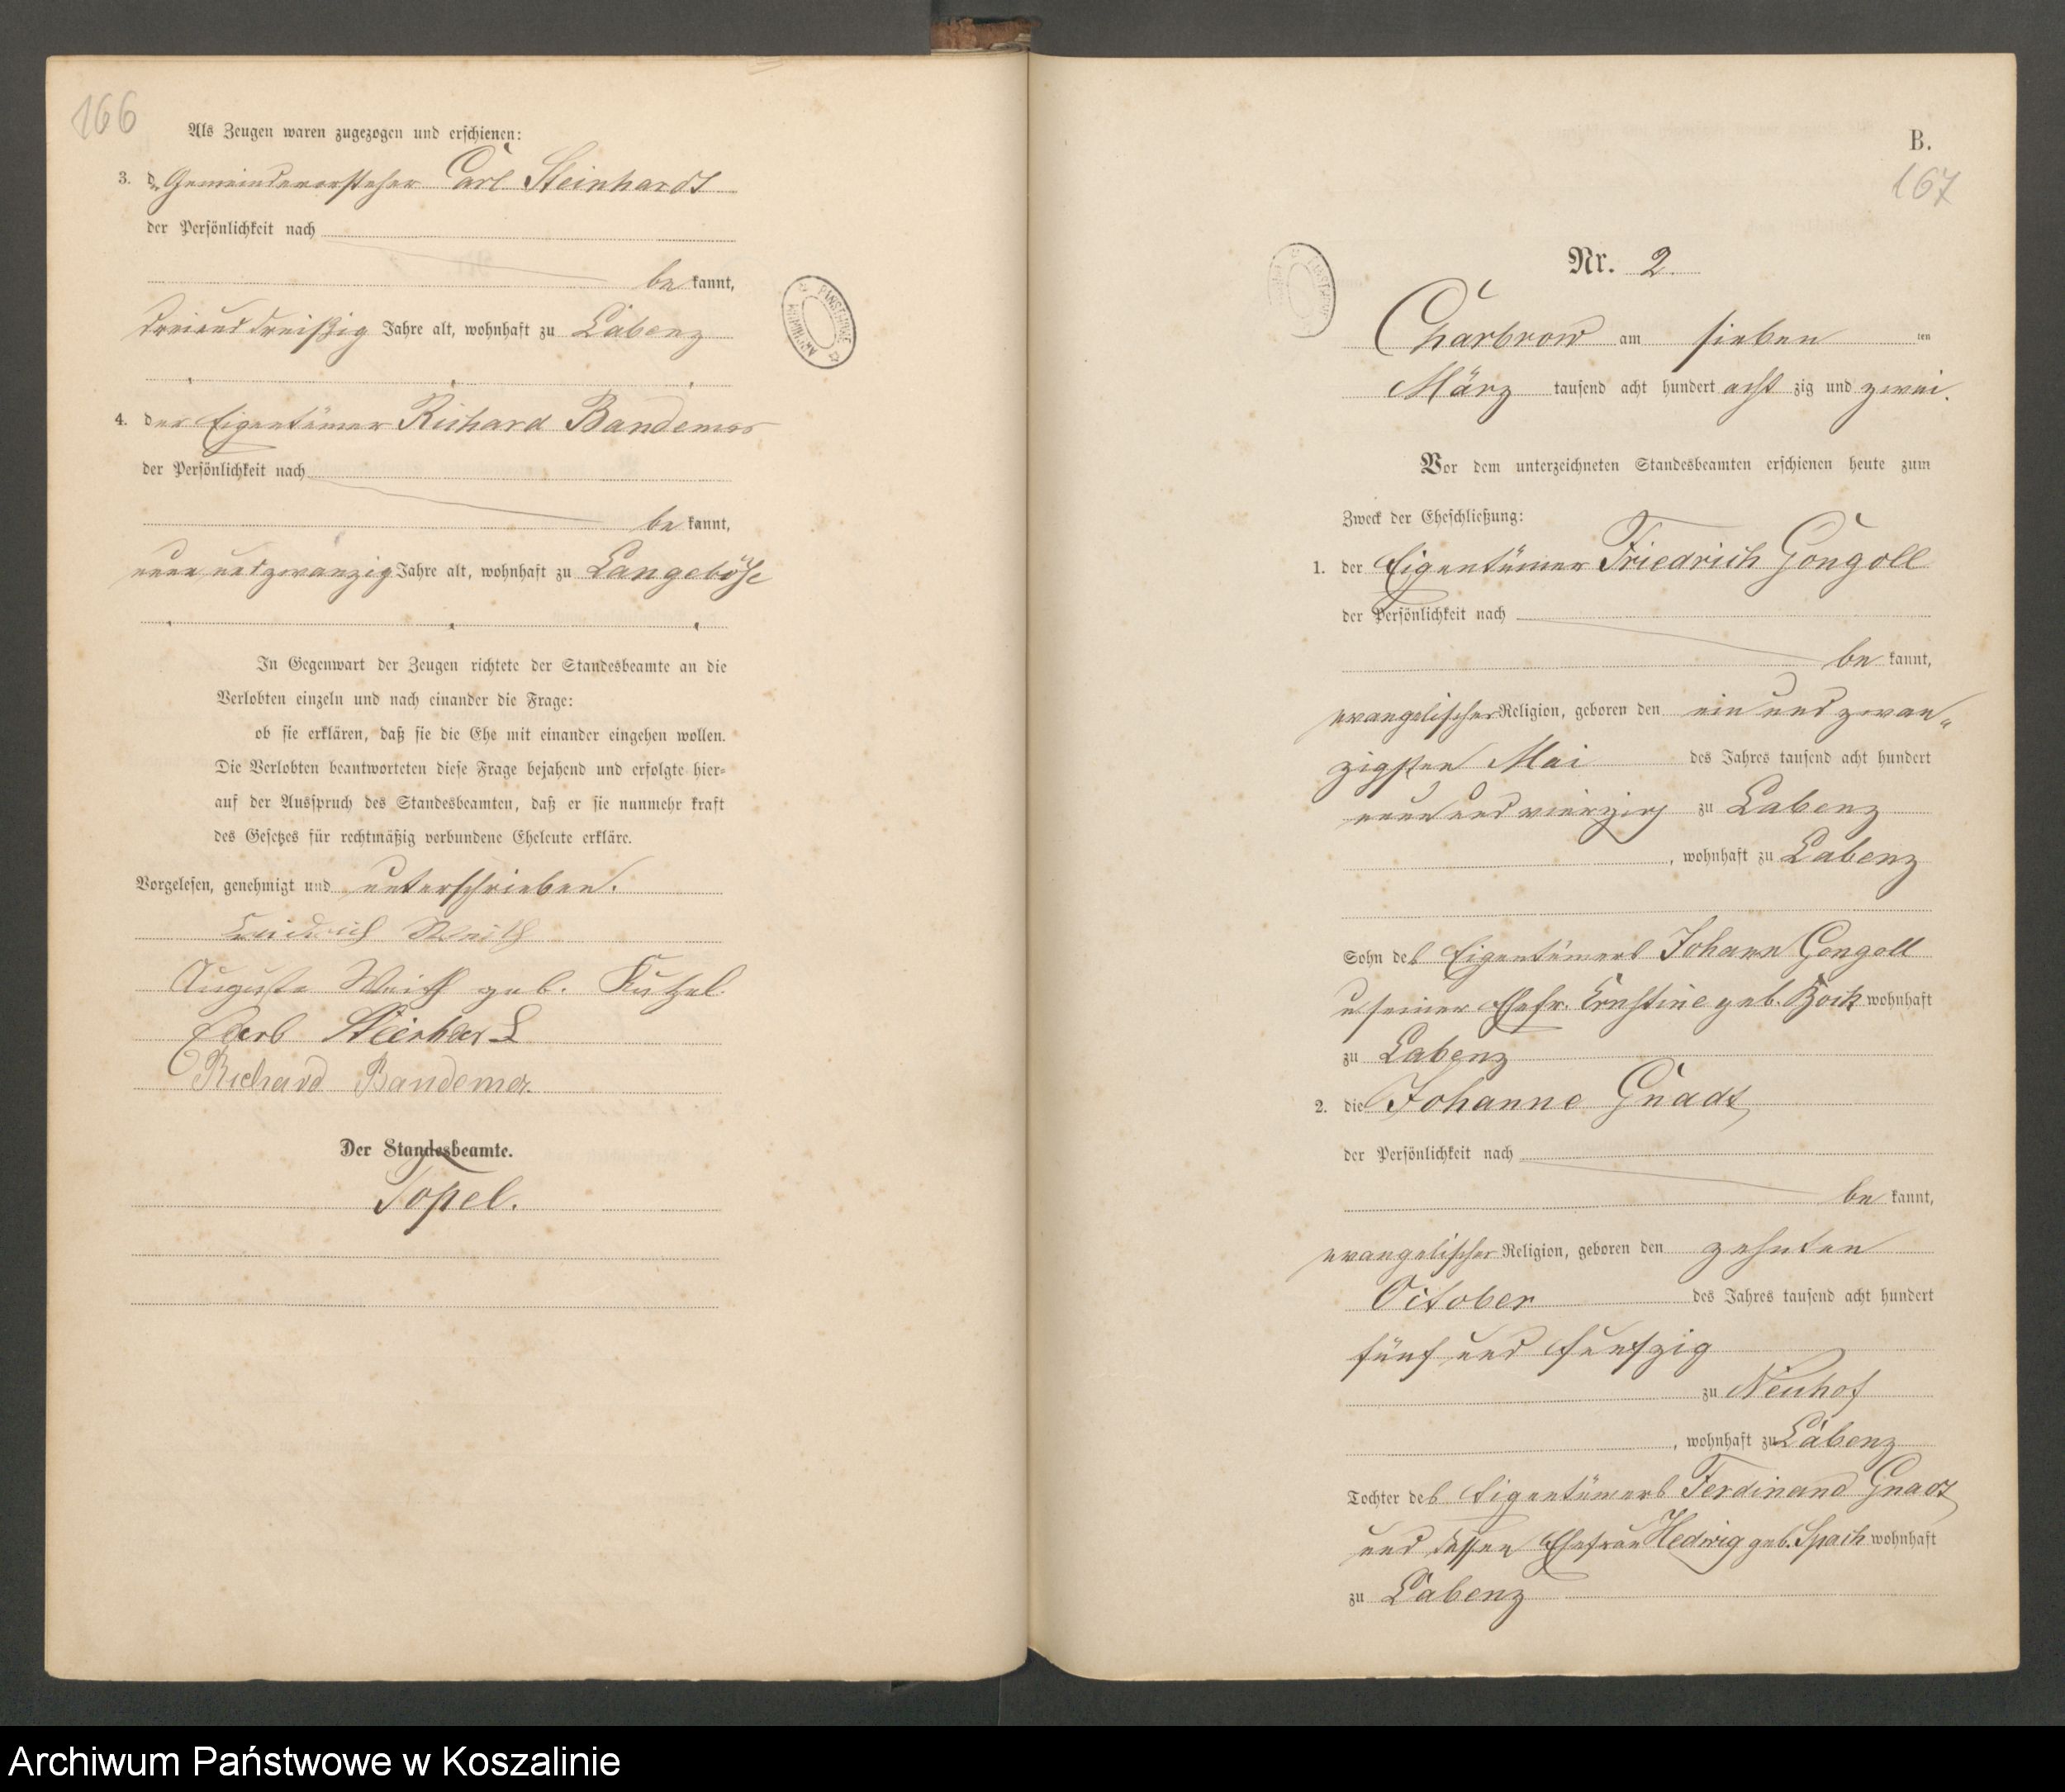 166
Als Zeugen waren zugezogen und erschienen:
3. d. Gemeindevorsteher Carl Steinhardt
der Persönlichkeit nach
be kannt,
dreiunddreißig Jahre alt, wohnhaft zu Labenz
4. der Eigentümer Richard Bandemer
der Persönlichkeit nach
be kannt,
neunundzwanzig Jahre alt, wohnhaft zu Langeböse
In Gegenwart der Zeugen richtete der Standesbeamte an die
Verlobten einzeln und nach einander die Frage:
ob sie erklären, daß sie die Ehe mit einander eingehen wollen.
Die Verlobten beantworteten diese Frage bejahend und erfolgte hier-
auf der Ausspruch des Standesbeamten, daß er sie nunmehr kraft
des Gesetzes für rechtmäßig verbundene Eheleute erkläre.
Vorgelesen, genehmigt und unterschrieben.
Auguste geb.
Richard Bandemer.
Der Standesbeamte.
Topel.
B.
167
Nr. 2.
Charbrow am sieben ten
März tausend acht hundert acht zig und zwei.
Vor dem unterzeichneten Standesbeamten erschienen heute zum
Zweck der Eheschließung:
1. der Eigentümer Friedrich Gongoll
der Persönlichkeit nach
be kannt,
evangelischer Religion, geboren den ein und zwan-
zigsten Mai des Jahres tausend acht hundert
neun und vierzig zu Labenz
, wohnhaft zu Labenz
Sohn des Eigentümers Johann Gongoll
u seiner Ehefr. Ernstine geb. wohnhaft
zu Labenz
2. die Johanne Gnadt
der Persönlichkeit nach
be kannt,
evangelischer Religion, geboren den zehnten
October des Jahres tausend acht hundert
fünf und funfzig
zu Neuhof
, wohnhaft zu Labenz
Tochter des Eigentümers Ferdinand Gnadt
und dessen Ehefrau Hedwig geb. Spach wohnhaft
zu Labenz
Archiwum Państwowe w Koszalinie